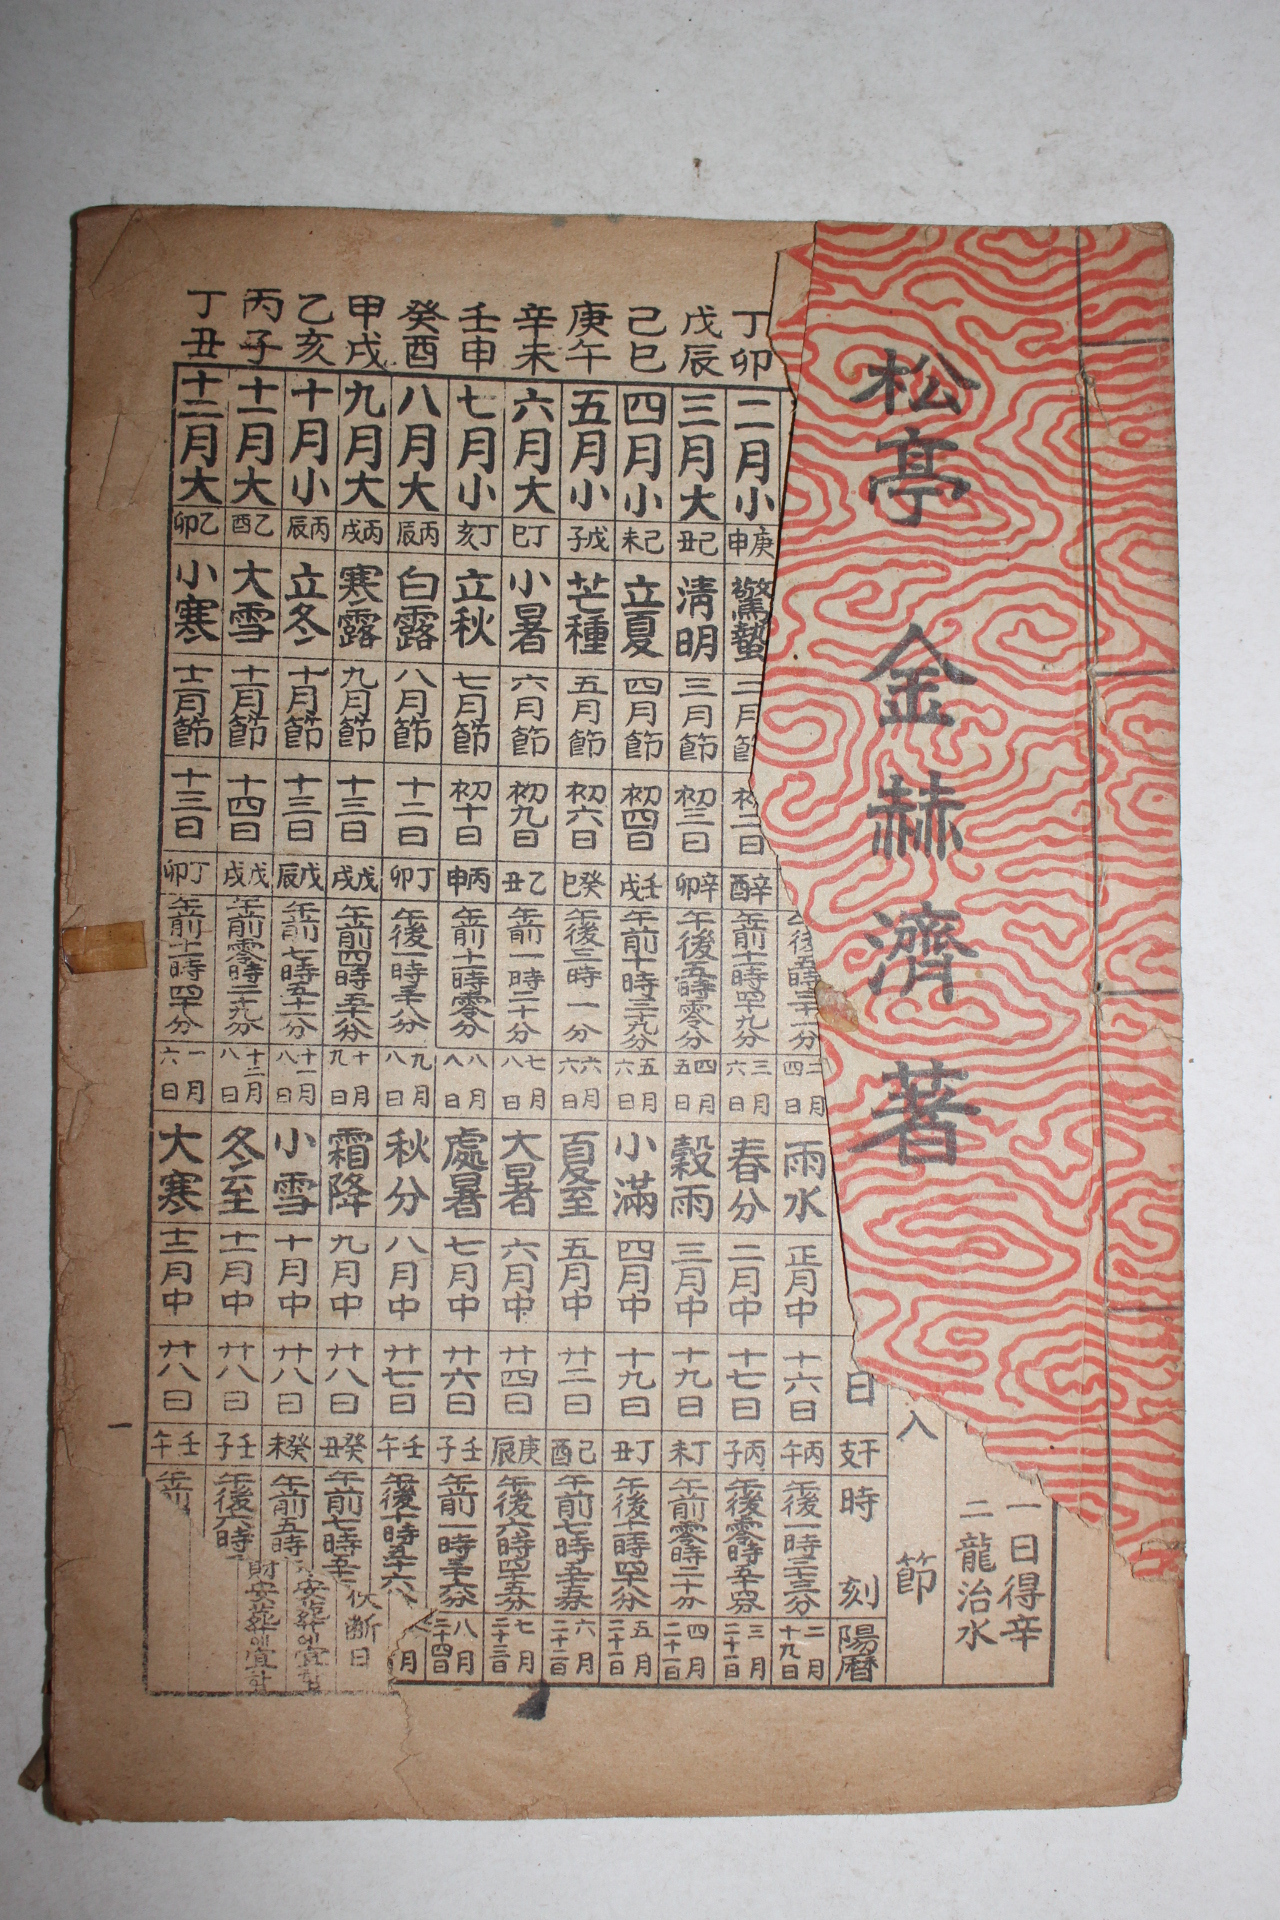 松亭金赫濟著
一日得辛
二龍治水
入 節
日 干支 時刻 陽曆
四日 二月 雨水 正月中 十六日 丙午 午後一時三十三分 二月十九日
丁卯 二月小 庚申 驚蟄 二月節 初二日 辛酉 午前十一時四十九分 三月六日 春分 二月中 十七日 丙子 午後零時五十四分 三月二十一日
戊辰 三月大 己丑 清明 三月節 初三日 辛卯 午後五時零分 四月五日 穀雨 三月中 十九日 丁未 午前零時二十分 四月二十一日
己巳 四月小 己未 立夏 四月節 初四日 壬戌 午前十時三十九分 五月六日 小滿 四月中 十九日 丁丑 午後十一時四十八分 五月二十一日
庚午 五月小 戊子 芒種 五月節 初六日 癸巳 午後三時一分 六月六日 夏至 五月中 廿二日 己酉 午前七時五十七分 六月二十二日
辛未 六月大 丁巳 小暑 六月節 初九日 乙丑 午前一時二十分 七月八日 大暑 六月中 廿四日 庚辰 午後六時四十五分 七月二十三日
壬申 七月小 丁亥 立秋 七月節 初十日 丙申 午前十一時零分 八月八日 處暑 七月中 廿六日 壬子 午前一時三十六分 八月二十四日
癸酉 八月大 丙辰 白露 八月節 十二日 丁卯 午後一時三十八分 九月八日 秋分 八月中 廿七日 壬午 午後十時五十六 月
甲戌 九月大 丙戌 寒露 九月節 十三日 戊戌 午前四時五十八分 十月九日 霜降 九月中 廿八日 癸丑 午前七時五十
乙亥 十月小 丙辰 立冬 十月節 十三日 戊辰 午前七時五十一分 十一月八日 小雪 十月中 廿八日 癸未 午前五時
丙子 十一月大 乙酉 大雪 十一月節 十四日 戊戌 午前零時二十九分 十二月八日 冬至 十一月中 廿八日 壬子 午後六時
丁丑 十二月大 乙卯 小寒 十二月節 十三日 丁卯 午前十一時四十分 一月六日 大寒 十二月中 廿八日 壬午 午前
伏斷日
一